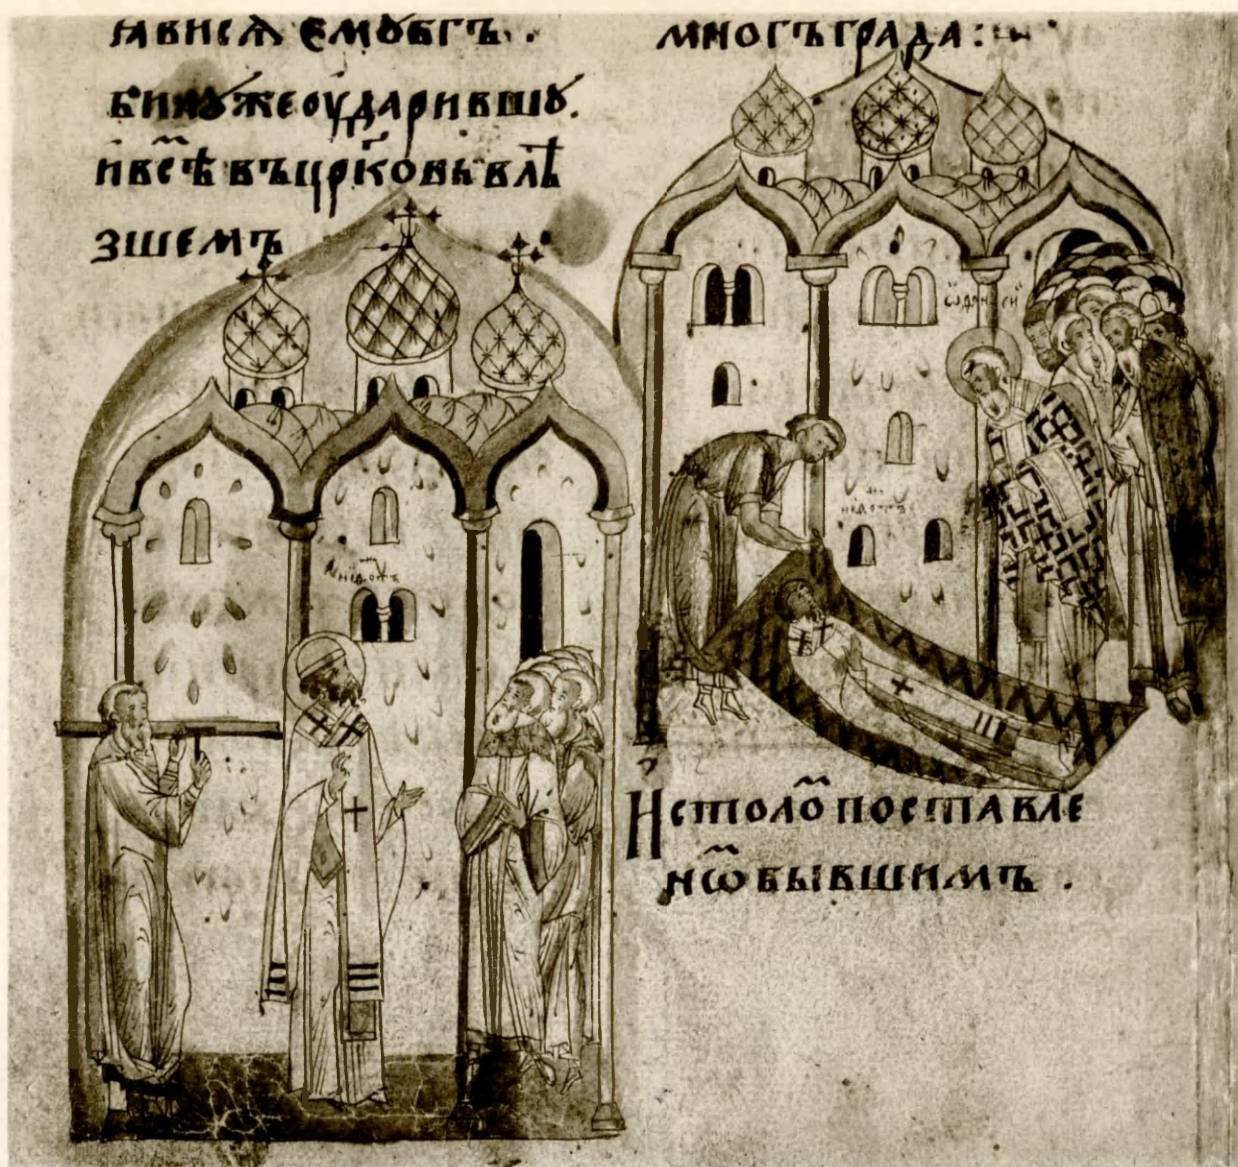 ꙗвисѧ емꙋ бг҃ъ.
билꙋ же оударившꙋ.
и всѣ въ црк҃овь влѣ
зшемъ
многъ града :
И столо҃ поставле
нѡ҃ бывшимъ .